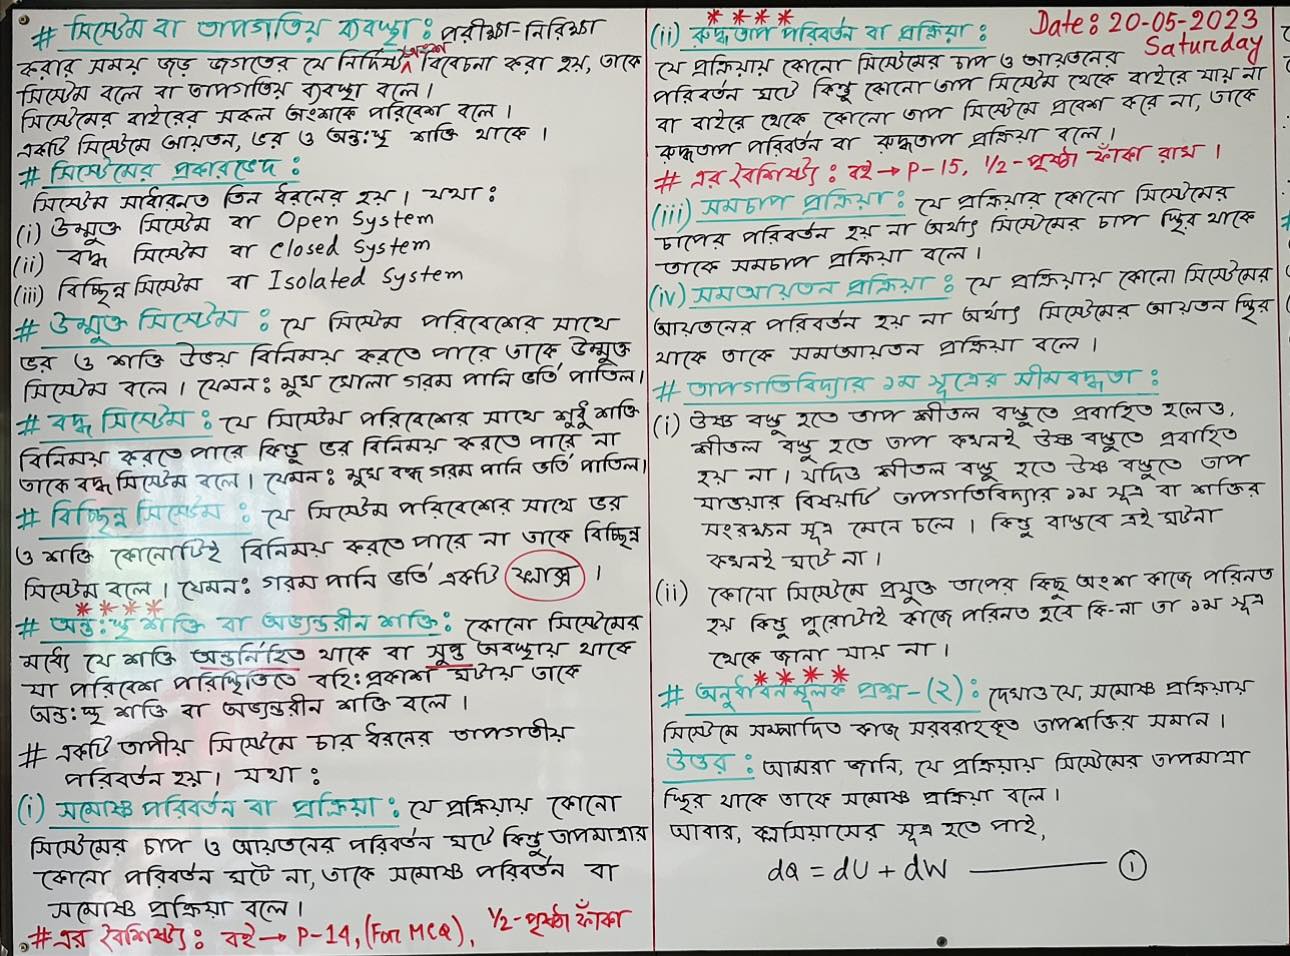 # সিস্টেম বা তাপগতিয় ব্যবস্থা : পরীক্ষা-নিরিক্ষা
করার সময় জড় জগতের যে নির্দিষ্ট অংশ বিবেচনা করা হয়, তাকে
সিস্টেম বলে বা তাপগতিয় ব্যবস্থা বলে।
সিস্টেমের বাইরের সকল অংশকে পরিবেশ বলে।
একটি সিস্টেমে আয়তন, ভর ও অন্ত:স্থ শক্তি থাকে।
# সিস্টেমের প্রকারভেদ :
সিস্টেম সাধারনত তিন ধরনের হয়। যথা :
(i) উন্মুক্ত সিস্টেম বা Open System
(ii) বদ্ধ সিস্টেম বা Closed System
(iii) বিচ্ছিন্ন সিস্টেম বা Isolated System
# উন্মুক্ত সিস্টেম : যে সিস্টেম পরিবেশের সাথে
ভর ও শক্তি উভয় বিনিময় করতে পারে তাকে উন্মুক্ত
সিস্টেম বলে। যেমন: মুখ খোলা গরম পানি ভর্তি পাতিল।
# বদ্ধ সিস্টেম : যে সিস্টেম পরিবেশের সাথে শুধু শক্তি
বিনিময় করতে পারে কিন্তু ভর বিনিময় করতে পারে না
তাকে বদ্ধ সিস্টেম বলে। যেমন : মুখ বদ্ধ গরম পানি ভর্তি পাতিল।
# বিচ্ছিন্ন সিস্টেম : যে সিস্টেম পরিবেশের সাথে ভর
ও শক্তি কোনোটিই বিনিময় করতে পারে না তাকে বিচ্ছিন্ন
সিস্টেম বলে। যেমন: গরম পানি ভর্তি একটি ফ্লাক্স।
****
# অন্ত:স্থ শক্তি বা অভ্যন্তরীন শক্তি : কোনো সিস্টেমের
মধ্যে যে শক্তি অন্তর্নিহিত থাকে বা সুপ্ত অবস্থায় থাকে
যা পরিবেশ পরিস্থিতিতে বহি:প্রকাশ ঘটায় তাকে
অন্ত:স্থ শক্তি বা অভ্যন্তরীন শক্তি বলে।
# একটি তাপীয় সিস্টেমে চার ধরনের তাপগতীয়
পরিবর্তন হয়। যথা :
(i) সমোষ্ণ পরিবর্তন বা প্রক্রিয়া : যে প্রক্রিয়ায় কোনো
সিস্টেমের চাপ ও আয়তনের পরিবর্তন ঘটে কিন্তু তাপমাত্রার
কোনো পরিবর্তন ঘটে না, তাকে সমোষ্ণ পরিবর্তন বা
সমোষ্ণ প্রক্রিয়া বলে।
# এর বৈশিষ্ট্য : বই → P-14, (For MCQ), 1/2-পৃষ্ঠা ফাঁকা
****
(ii) রুদ্ধতাপ পরিবর্তন বা প্রক্রিয়া :
Date: 20-05-2023
Saturday
যে প্রক্রিয়ায় কোনো সিস্টেমের চাপ ও আয়তনের
পরিবর্তন ঘটে কিন্তু কোনো তাপ সিস্টেম থেকে বাইরে যায় না
বা বাইরে থেকে কোনো তাপ সিস্টেমে প্রবেশ করে না, তাকে
রুদ্ধতাপ পরিবর্তন বা রুদ্ধতাপ প্রক্রিয়া বলে।
# এর বৈশিষ্ট্য : বই → P-15, 1/2-পৃষ্ঠা ফাঁকা রাখ।
(iii) সমচাপ প্রক্রিয়া : যে প্রক্রিয়ার কোনো সিস্টেমের
চাপের পরিবর্তন হয় না অর্থাৎ সিস্টেমের চাপ স্থির থাকে
তাকে সমচাপ প্রক্রিয়া বলে।
(iv) সমআয়তন প্রক্রিয়া : যে প্রক্রিয়ায় কোনো সিস্টেমের
আয়তনের পরিবর্তন হয় না অর্থাৎ সিস্টেমের আয়তন স্থির
থাকে তাকে সমআয়তন প্রক্রিয়া বলে।
# তাপগতিবিদ্যার ১ম সূত্রের সীমবদ্ধতা :
(i) উষ্ণ বস্তু হতে তাপ শীতল বস্তুতে প্রবাহিত হলেও,
শীতল বস্তু হতে তাপ কখনই উষ্ণ বস্তুতে প্রবাহিত
হয় না। যদিও শীতল বস্তু হতে উষ্ণ বস্তুতে তাপ
যাওয়ার বিষয়টি তাপগতিবিদ্যার ১ম সূত্র বা শক্তির
সংরক্ষন সূত্র মেনে চলে। কিন্তু বাস্তবে এই ঘটনা
কখনই ঘটে না।
(ii) কোনো সিস্টেমে প্রযুক্ত তাপের কিছু অংশ কাজে পরিনত
হয় কিন্তু পুরোটাই কাজে পরিনত হবে কি-না তা ১ম সূত্র
থেকে জানা যায় না।
****
# অনুধাবনমূলক প্রশ্ন-(২) : দেখাও যে, সমোষ্ণ প্রক্রিয়ায়
সিস্টেমে সম্পাদিত কাজ সরবরাহকৃত তাপশক্তির সমান।
উত্তর : আমরা জানি, যে প্রক্রিয়ায় সিস্টেমের তাপমাত্রা
স্থির থাকে তাকে সমোষ্ণ প্রক্রিয়া বলে।
আবার, ক্লসিয়াসের সূত্র হতে পাই,
dQ = dU + dW ——— ①